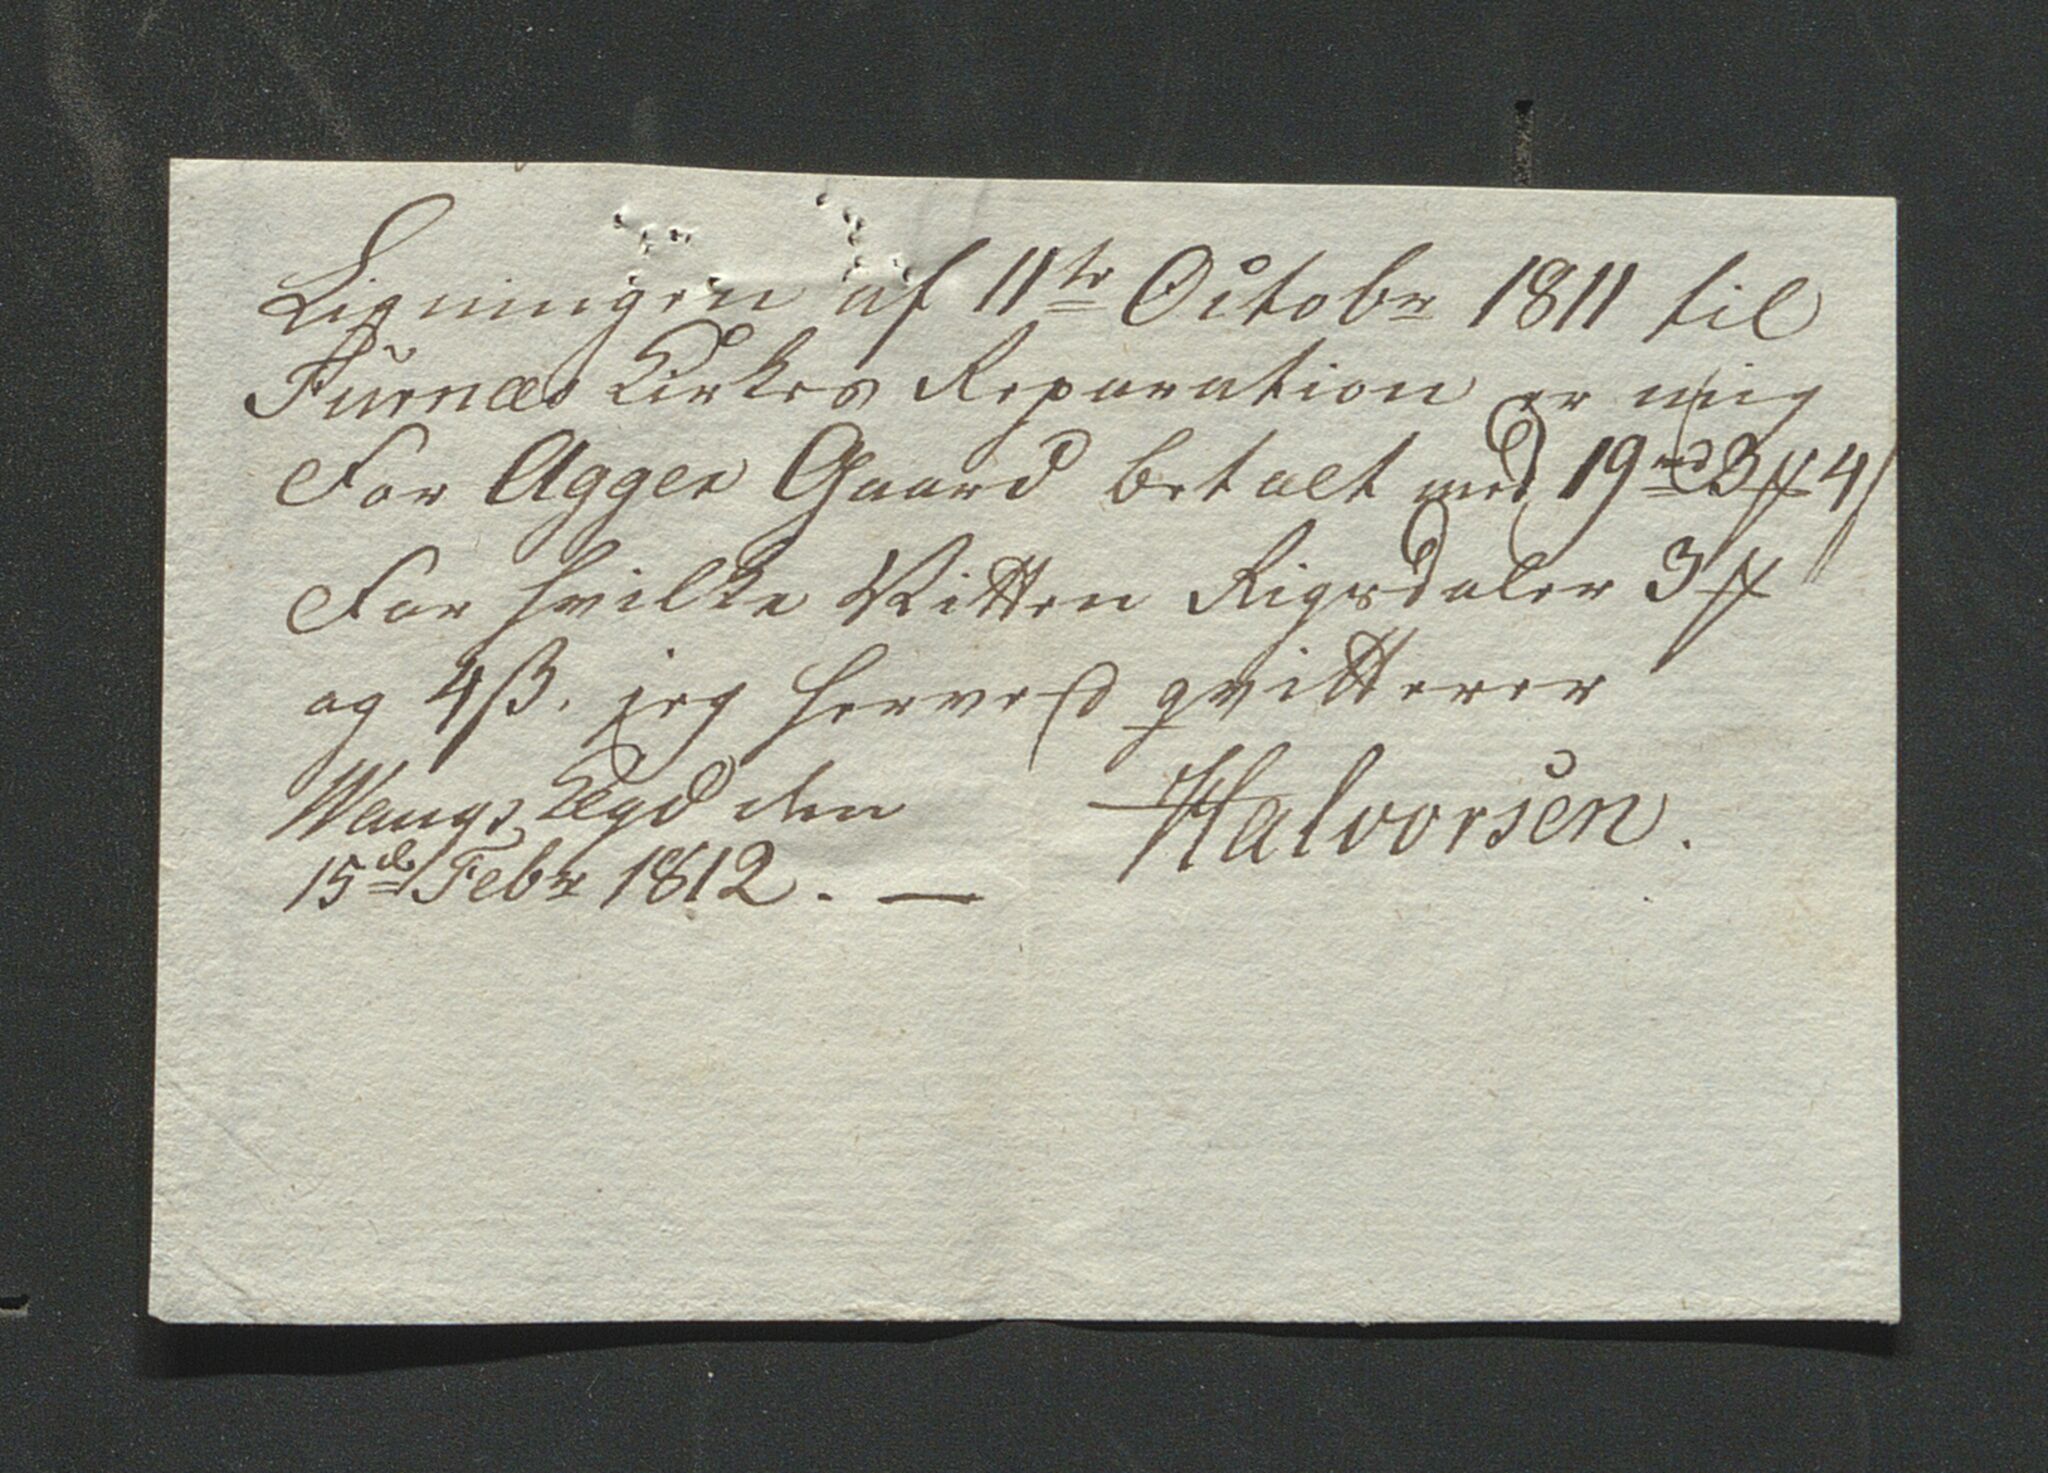 Ligningen af 11te Octobr 1811 til
Furnæs Kirkes Reparation er mig
For Ager Gaard betalt med 19 rd 3 ƒ 4 ß
For hvilke Nitten Rigsdaler 3 ƒ
og 4 ß. jeg herved qvitterer
Wangs den
15de Febr 1812. — Halvorsen.